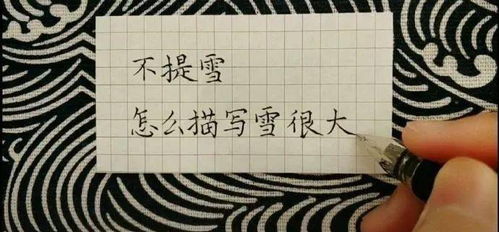 不提雪
怎么描写雪很大